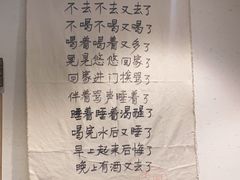 不去不去又去了
不喝不喝又喝了
喝着喝着又多了
晃晃悠悠回家了
回家进门挨骂了
伴着骂声睡着了
睡着睡着渴醒了
喝完水后又睡了
早上起来后悔了
晚上有酒又去了